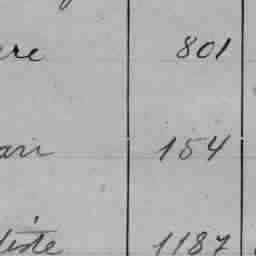 ere 801
ari 154
liste 1187